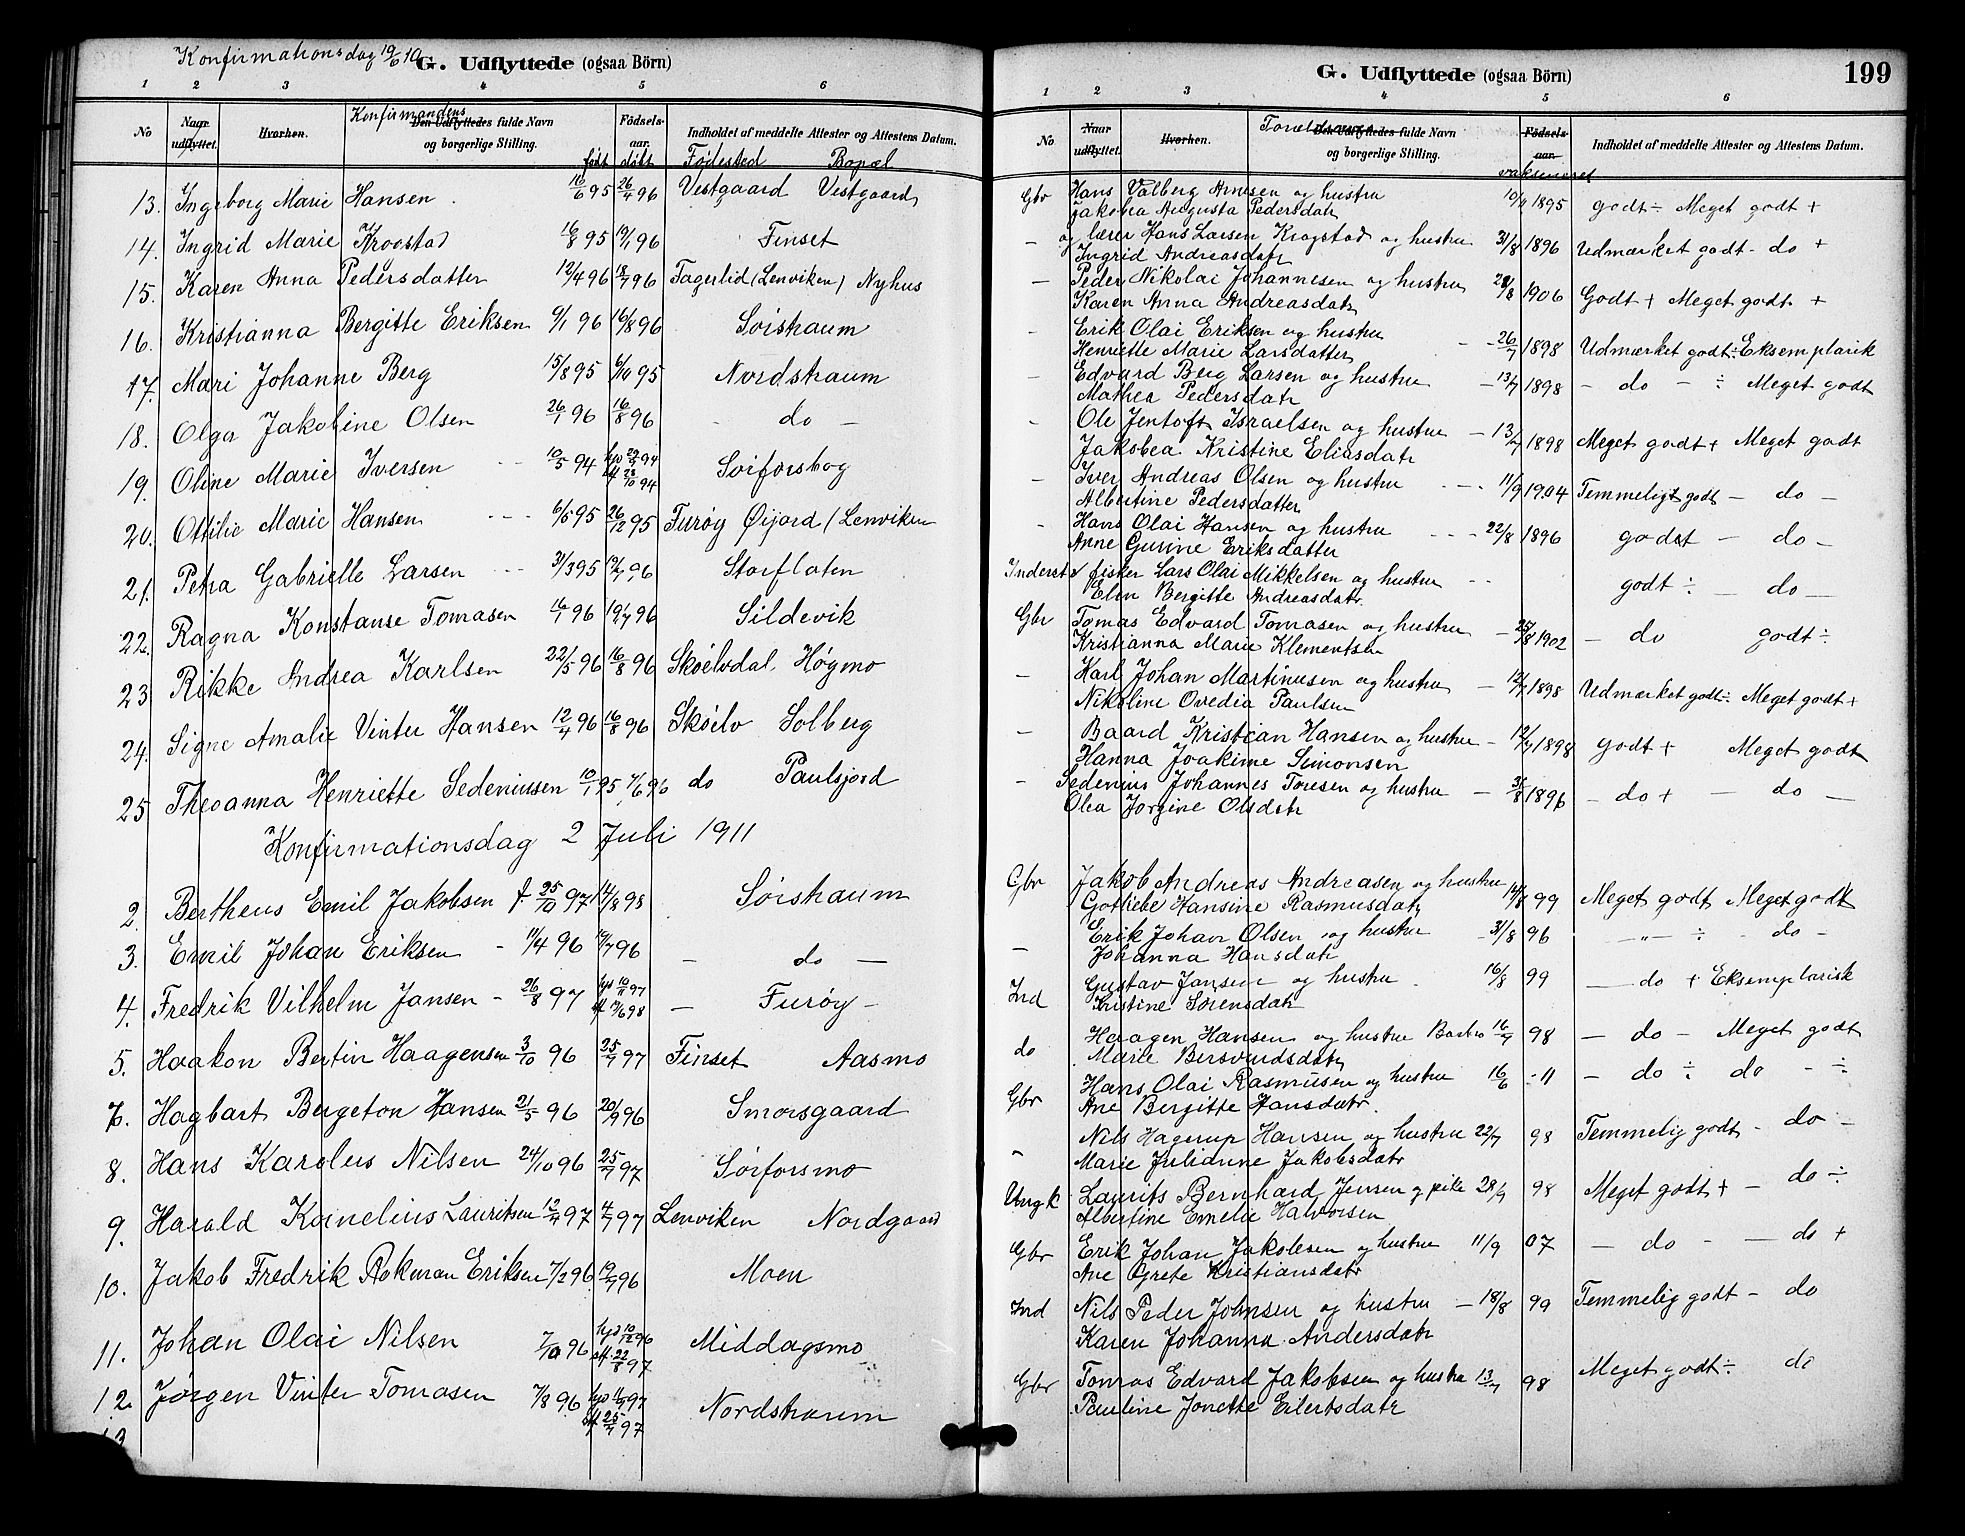 Konfirmationsdag 19/6 10
G. Udflyttede (ogsaa Börn)
1 2 3 4 5 6
No Naar udflyttet. Hvorhen. Konfirmandens Den Udflyttedes fulde Navn og borgerlige Stilling. Födsels-aar. Indholdet af meddelte Attester og Attestens Datum.
født døbt Fødested Bopæl
13. Ingeborg Marie Hansen 16/6 95 26/4 96 Vestgaard Vestgaard
14. Ingrid Marie Krogstad 16/8 95 19/1 96 Finset
15. Karen Anna Pedersdatter 12/4 96 18/7 96 Fagerlid (Lenviken) Nyhus
16. Kristianna Bergitte Eriksen 9/1 96 16/8 96 Soistraum
17. Mari Johanne Berg 15/8 95 6/10 95 Nordstraum
18. Olga Jakobine Olsen 26/1 96 16/8 96 - do -
19. Oline Marie Iversen 10/5 94 hjd 29/7 94 stf 28/10 94 Sørforsbog
20. Ottilie Marie Hansen 6/5 95 26/12 95 Furøy Øijord (Lenviken
21. Petra Gabrielle Larsen 31/3 95 12/7 96 Storfloten
22. Ragna Konstanse Tomasen 16/1 96 19/7 96 Sildevik
23 Rikke Andrea Karlsen 22/5 96 16/8 96 Skøelvdal Høgmo
24. Signe Amalie Vinter Hansen 12/4 96 16/8 96 Skøelv Solberg
25 Theoanna Henriette Sedeniussen 10/1 95 7/6 96 do Paulsjord
Konfirmationsdag 2 Juli 1911
2. Bertheus Emil Jakobsen f. 25/10 97 14/8 98 Sørstraum
3. Emil Johan Eriksen - 11/4 96 19/7 96 - do -
4. Fredrik Vilhelm Jansen - 26/8 97 hjd 10/11 97 stf 19/6 98 - Furøy -
5. Haakon Bertin Haagensen 3/10 96 25/7 97 Finset Aasmo
7. Hagbart Bergeton Hansen 21/5 96 20/9 96 Smorsgaard
8. Hans Karolus Nilsen 24/10 96 25/7 97 Sørforsmo
9. Harald Kornelius Lauritsen 12/4 97 4/7 97 Lenviken Nordgaard
10. Jakob Fredrik Rokman Eriksen 7/2 96 19/7 96 Moen
11. Johan Olai Nilsen 7/10 96 hjd 10/12 96 stf. 22/8 97 Middagsmo
12. Jørgen Vinter Tomasen 7/8 96 hjd 11/4 97 stf 25/7 97 Nordstraum
13
G. Udflyttede (ogsaa Börn)
199
1 2 3 4 5 6
No Naar udflyttet. Hvorhen. Forældrenes Den Udflyttedes fulde Navn og borgerlige Stilling. Födsels-aar. Indholdet af meddelte Attester og Attestens Datum.
vaksineret
Gbr Hans Valberg Arntsen og hustru 10/9 1895 godt ÷ Meget godt +
Jakobia Augusta Pedersdatr
- og lærer Hans Larsen Krogstad og hustru 31/8 1896 Udmærket godt - do +
Ingrid Andreasdatr
- Peder Nikolai Johannesen og hustru 28/8 1906 Godt + Meget godt +
Karen Anna Andreasdatr
- Erik Olai Eriksen og hustru - - 26/7 1898 Udmærket godt ÷ Eksemplarik
Henriette Marie Larsdatter
- Edvard Berg Larsen og hustru - 13/7 1898 - do - ÷ Meget godt
Mathea Pedersdatr
- Ole Jentoft Israelsen og hustru - 13/7 1898 Meget godt + Meget godt
Jakobea Kristine Eliasdatr
- Iver Andreas Olsen og hustru - - - 11/9 1904 Temmeligt godt - do -
Albertine Pedersdatter
- Hans Olai Hansen og hustru - - - 22/8 1896 godt - do -
Anne Gurine Eriksdatter
Inderst & fisker Lars Olai Mikkelsen og hustru - - godt ÷ - do -
Elen Bergitte Andreasdatr.
Gbr Tomas Edvard Tomasen og hustru - 25/8 1902 - do godt ÷
Kristianna Marie Klementsen
- Karl Johan Martinusen og hustru - 12/7 1898 Udmærket godt ÷ Meget godt +
Nikoline Ovedia Paulsen
- Baard Kristian Hansen og hustru - 12/7 1898 godt + Meget godt
Hanna Joakime Simonsen
- Sedenius Johannes Toresen og hustru - 31/8 1896 - do + - do -
Olea Jorgine Olsdatr
Gbr Jakob Andreas Andreasen og hustru 14/8 99 Meget godt Meget godt
Gotliebe Hansine Rasmusdatr
- Erik Johan Olsen og hustru - 31/8 96 - " - ÷ - do -
Johanna Hansdatr
Ind Gustav Jansen og hustru 16/8 99 - do + Eksemplarisk
Kristine Sørensdatr
do Haagen Hansen og hustru Barbro 16/7 98 - do - Meget godt
Marie Bersvendsdatr
Gbr Hans Olai Rasmusen og hustru 16/6 - 11 - do ÷ do - ÷
Ane Bergitte Hansdatr.
- Nils Hagerup Hansen og hustru 22/7 98 Temmelig godt - do -
Marie Julianne Jakobsdatr
Ungk Laurits Bernhard Jensen og pike 28/9 98 Meget godt + - do ÷
Albertine Emelie Halvorsen
Gbr Erik Johan Jakobsen og hustru 11/9 07 - do - - do +
Ane Grete Kristiansdatr
Ind Nils Peder Johnsen og hustru - 18/8 99 Temmelig godt - do
Karen Johanna Andersdatr
Gbr Tomas Edvard Jakobsen og hustru 13/7 98 Meget godt ÷ do
Pauline Jonette Eilertsdatr